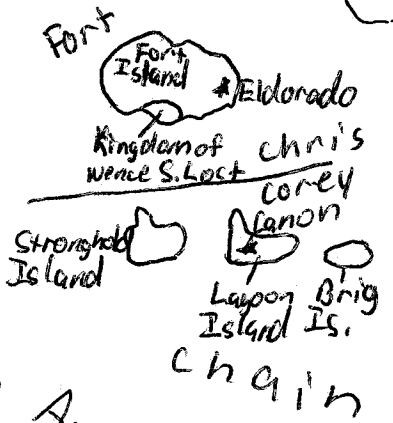 Fort
Fort
Island
Eldorado
Kingdom of
Wence S. Lost
chris
corey
Canon
Stronghold
Island
Lagoon
Island
Brig
Is.
chain